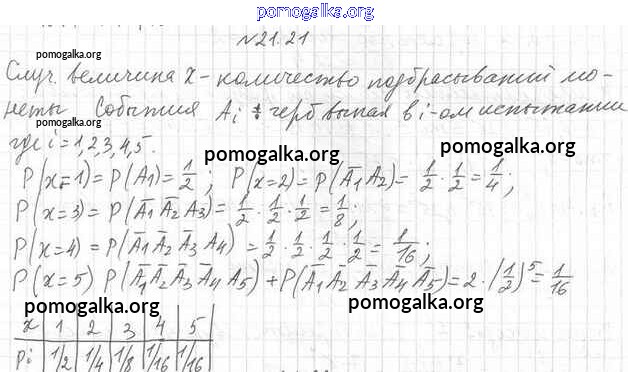 pomogalka.org
№21.21
pomogalka.org
Случ. величина X - количество подбрасываний мо-
неты События Ai : герб выпал в i-ом испытании
pomogalka.org
где i = 1,2,3,4,5.
pomogalka.org pomogalka.org
P(x=1) = P(A1) = 1/2; P(x=2) = P(Ā1 A2) = 1/2 · 1/2 = 1/4;
P(x=3) = P(Ā1 Ā2 A3) = 1/2 · 1/2 · 1/2 = 1/8;
P(x=4) = P(Ā1 Ā2 Ā3 A4) = 1/2 · 1/2 · 1/2 · 1/2 = 1/16;
P(x=5) P(Ā1 Ā2 Ā3 Ā4 A5) + P(Ā1 Ā2 Ā3 Ā4 Ā5) = 2 · (1/2)^5 = 1/16
pomogalka.org pomogalka.org
x 1 2 3 4 5
pi 1/2 1/4 1/8 1/16 1/16